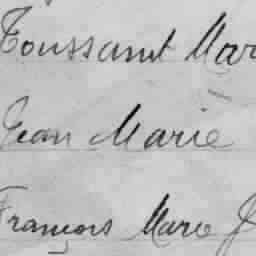 Toussaint Mar
Jean Marie
François Marie J